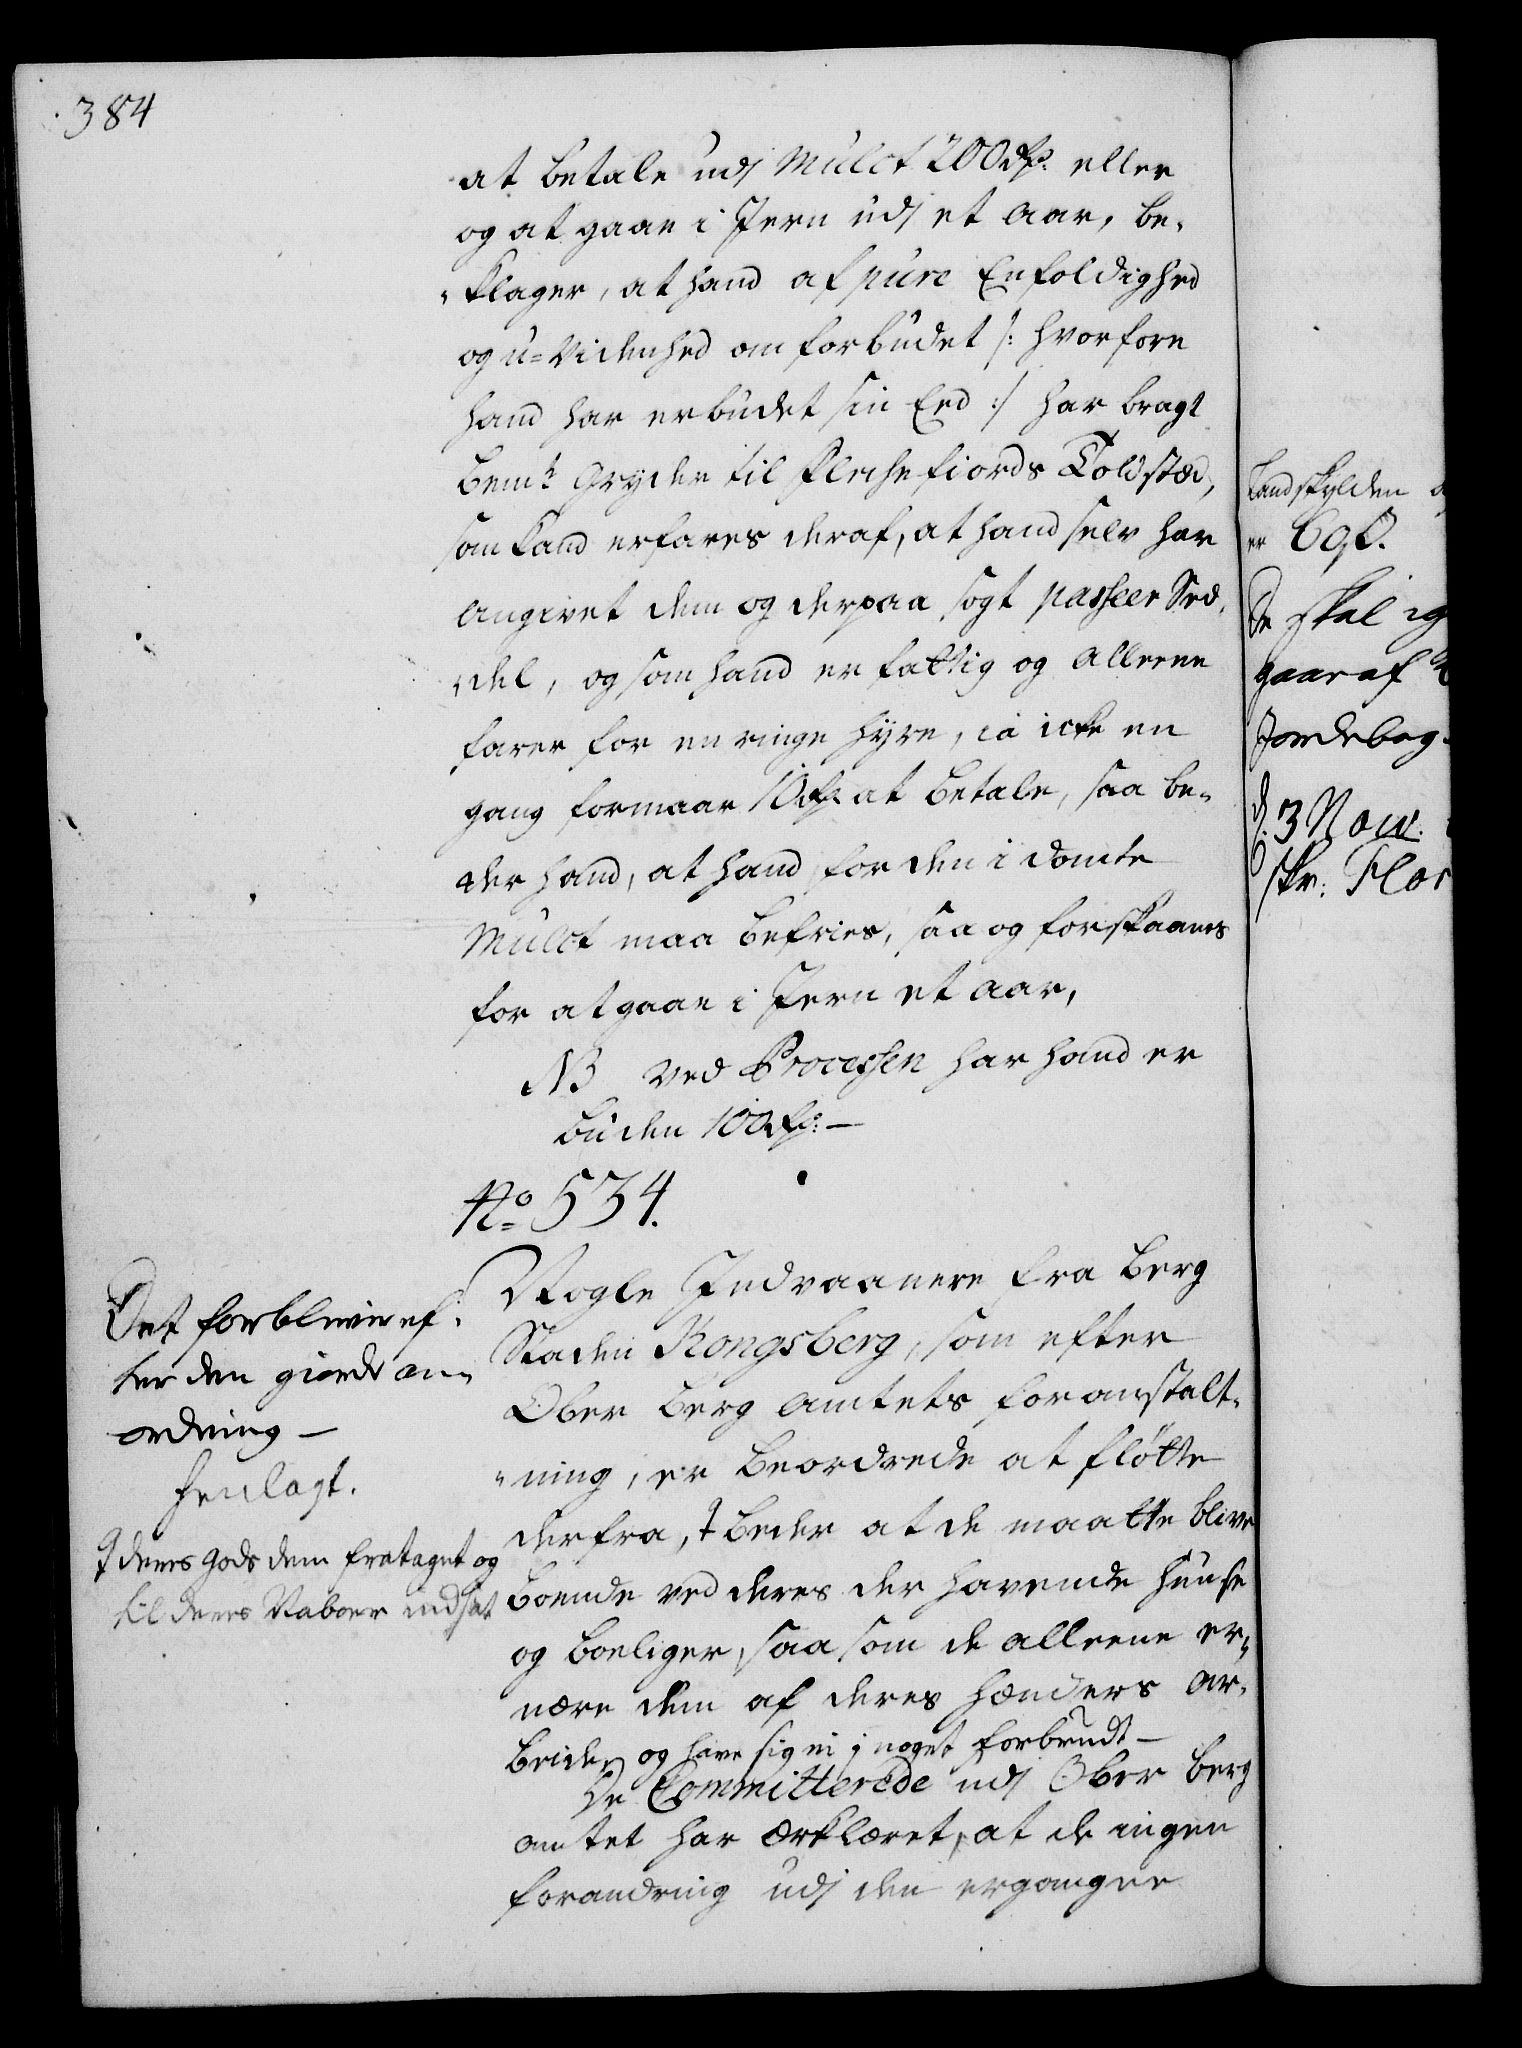 384
at betale udj Mulct 200 rdr: eller
og at gaae i Jern udj et aar, be-
klager, at hand af pure Enfoldighed
og u-videnhed om forbudet /: hvorfore
hand har erbudet sin Eed :/ har bragt
bemte Gryder til Flechefiords Toldsted,
som kand erfares deraf, at hand selv har
angivet dem og derpaa søgt passeer Sed-
del, og som hand er fattig og alleene
farer for en ringe hÿre, ia icke en
gang formaar 10 rdr at betale, saa be-
der hand, at hand for den i dømte
Mulct maa befries, saa og forskaanes
for at gaae i Jern et aar,
NB ved Processen har hand er
buden 100 rdr: —
No 534.
Nogle Indvaanere fra Berg
Staden Kongsberg, som efter
Ober Berg Amtets foranstalt-
ning, er beordrede at fløtte
derfra, † beder at de maatte blive
boende ved deres der havende Huuse
og boeliger, saa som de alleene er-
nære dem af deres hænders ar-
beide, og have sig ei i noget forbrudt —
De Committerede udj Ober berg
amtet har ærklæret, at de ingen
forandring udj den ergangne
Det forbliver ef-
ter den giorde an-
ordning —
Henlagt.
† deres gods dem frataget og
til deres Naboer indsat
Landskylden
er 6 
De skal ig
gaar af
Jordebog
d. 3 Nov.
skr: Flor